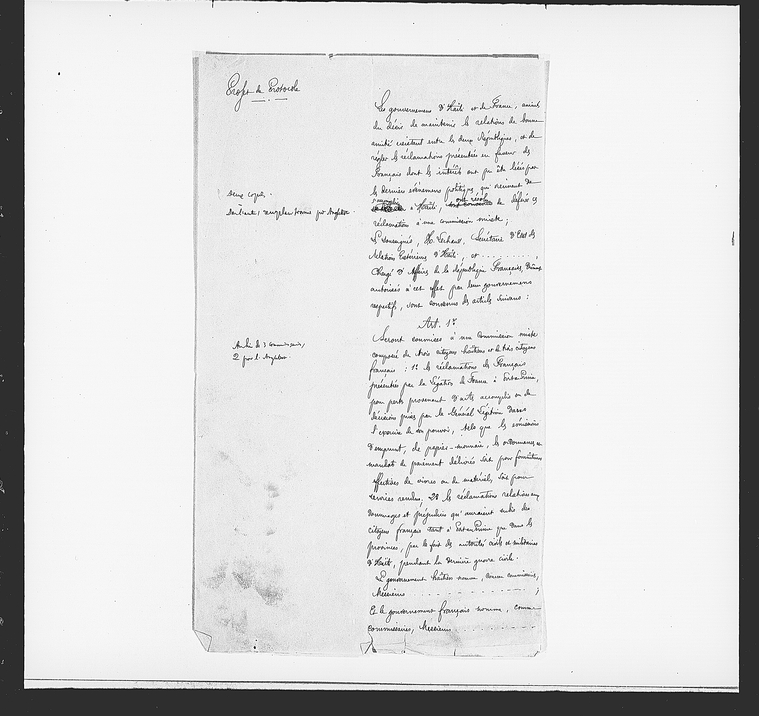 Projet de Protocole
Les gouvernemens d'Haïti et de France, animés
du désir de maintenir les relations de bonne
amitié existant entre les deux Républiques, et de
régler les réclamations présentées en faveur des
Français dont les intérêts ont pu être lésés par
les derniers évènemens politiques, qui viennent de
à Haïti, ont résolu de déférer ces
réclamations à une commission mixte;
Les Soussignés, Secrétaire d'Etat des
Relations Extérieures d'Haïti, et . . . . . . . .
Chargé d'Affaires de la République Française, dûment
autorisés à cet effet par leurs gouvernemens
respectifs, sont convenus des articles suivans :
Art. 1er
Seront soumises à une Commission mixte
composée de trois citoyens haïtiens et de trois citoyens
français : 1º les réclamations des Français
présentées par la Légation de France à Port-au-Prince,
pour pertes provenant d'actes accomplis ou de
décisions prises par le Général Légitime dans
l'exercice de son pouvoir, tels que les émissions
d'emprunt, de papier-monnaie, les ordonnances,
mandats de paiement délivrés soit pour fournitures
effectives de vivres ou de matériels, soit pour
services rendus, 2º les réclamations relatives aux
dommages et préjudices qu'auraient subis des
citoyens français tant à Port-au-Prince que dans les
provinces, par le fait des autorités civiles et militaires
d'Haïti, pendant la dernière guerre civile.
Le gouvernement haïtien nomme, comme commissaires,
Messieurs . . . . . . . . . . . . ;
Et le gouvernement français nomme, comme
commissaires, Messieurs . . . . . . . .
Au lieu de 3 Commissaires,
2 pour l'Angleterre.